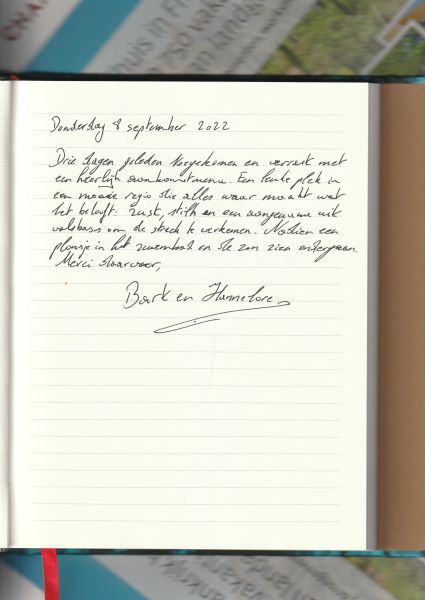 CHA
Donderdag 8 september 2022
Drie dagen geleden toegekomen en verrast met
een heerlijk aankomstmenu. Een leuke plek in
een mooie regio die alles waar maakt wat
het belooft: rust, stilte en een aangename uit
valsbasis om de streek te verkennen. Nadien een
plonsje in het zwembad en de zon zien ondergaan.
Merci daarvoor,
Bart en Hannelore